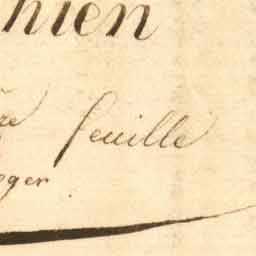 hien
re feuille
oger